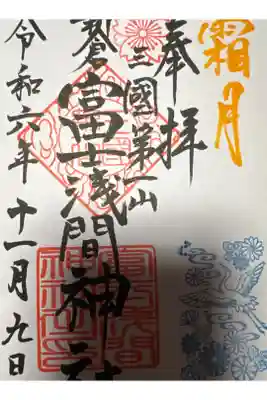 霜月
奉拝
三國第一山
倉
冨士淺間神社
令和六年十一月九日